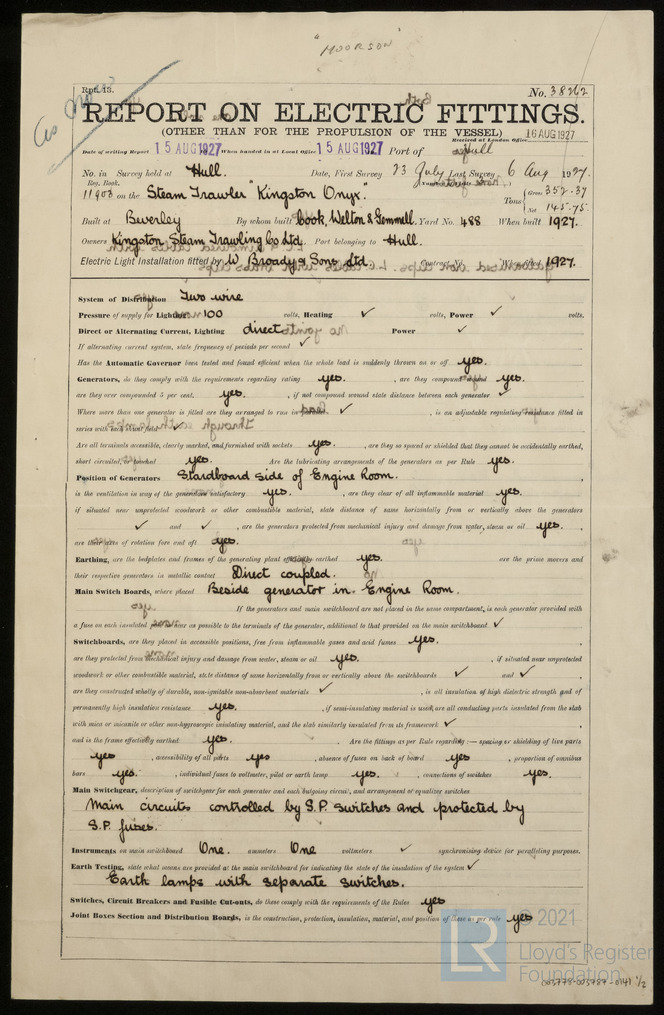 "MOORSON"
Rpt. 13.
No. 38262
REPORT ON ELECTRIC FITTINGS.
(OTHER THAN FOR THE PROPULSION OF THE VESSEL)
Received at London Office 16 AUG 1927
Date of writing Report 15 AUG 1927 When handed in at Local Office 15 AUG 1927 Port of Hull
No. in Survey held at Hull. Date, First Survey 23 July Last Survey 6 Aug 1927.
Reg. Book.
11908 on the Steam Trawler "Kingston Onyx". Tons Gross 352.37
Net 145.75
Built at Beverley By whom built Cook, Welton & Gemmell. Yard No. 488 When built 1927.
Owners Kingston Steam Trawling Co Ltd. Port belonging to Hull.
Electric Light Installation fitted by W. Broady & Sons Ltd. Contract No. When fitted 1927.
System of Distribution Two wire
Pressure of supply for Lighting 100 volts, Heating ✓ volts, Power ✓ volts.
Direct or Alternating Current, Lighting direct Power ✓
If alternating current system, state frequency of periods per second ✓
Has the Automatic Governor been tested and found efficient when the whole load is suddenly thrown on or off yes.
Generators, do they comply with the requirements regarding rating yes. , are they compound wound yes.
are they over compounded 5 per cent. yes. , if not compound wound state distance between each generator ✓
Where more than one generator is fitted are they arranged to run in parallel ✓ , is an adjustable regulating resistance fitted in
series with each shunt field ✓
Are all terminals accessible, clearly marked, and furnished with sockets yes. , are they so spaced or shielded that they cannot be accidentally earthed,
short circuited, or touched yes. Are the lubricating arrangements of the generators as per Rule yes.
Position of Generators Stardboard side of Engine Room.
is the ventilation in way of the generators satisfactory yes. , are they clear of all inflammable material yes.
if situated near unprotected woodwork or other combustible material, state distance of same horizontally from or vertically above the generators
✓ and ✓ , are the generators protected from mechanical injury and damage from water, steam or oil yes. ,
are their axes of rotation fore and aft yes.
Earthing, are the bedplates and frames of the generating plant efficiently earthed yes. are the prime movers and
their respective generators in metallic contact Direct coupled.
Main Switch Boards, where placed Beside generator in Engine Room.
If the generators and main switchboard are not placed in the same compartment, is each generator provided with
a fuse on each insulated pole as near as possible to the terminals of the generator, additional to that provided on the main switchboard ✓
Switchboards, are they placed in accessible positions, free from inflammable gases and acid fumes yes.
are they protected from mechanical injury and damage from water, steam or oil yes. , if situated near unprotected
woodwork or other combustible material, state distance of same horizontally from or vertically above the switchboards ✓ and ✓ ,
are they constructed wholly of durable, non-ignitable non-absorbent materials ✓ , is all insulation of high dielectric strength and of
permanently high insulation resistance yes. , if semi-insulating material is used, are all conducting parts insulated from the slab
with mica or micanite or other non-hygroscopic insulating material, and the slab similarly insulated from its framework ✓ ,
and is the frame effectively earthed yes. . Are the fittings as per Rule regarding :— spacing or shielding of live parts
yes , accessibility of all parts yes , absence of fuses on back of board yes , proportion of omnibus
bars yes. , individual fuses to voltmeter, pilot or earth lamp yes. , connections of switches yes.
Main Switchgear, description of switchgear for each generator and each outgoing circuit, and arrangement or equalizer switches
Main circuits controlled by S.P. switches and protected by
S.P. fuses.
Instruments on main switchboard One. ammeters One voltmeters ✓ synchronising device for paralleling purposes.
Earth Testing, state what means are provided at the main switchboard for indicating the state of the insulation of the system ✓
Earth lamps with separate switches.
Switches, Circuit Breakers and Fusible Cut-outs, do these comply with the requirements of the Rules yes
Joint Boxes Section and Distribution Boards, is the construction, protection, insulation, material, and position of these as per rule yes
© 2021
LR
Lloyd's Register
Foundation
003778-003787-0141 1/2